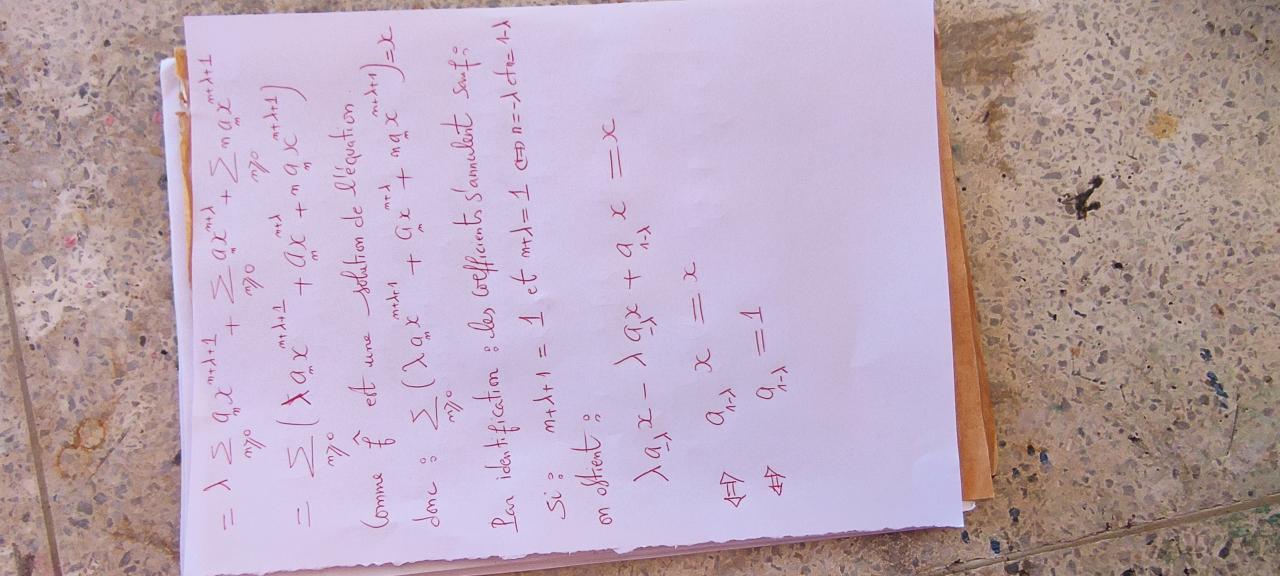 = λ ∑_{n≥0} a_n x^{n+λ+1} + ∑_{n≥0} a_n x^{n+λ} + ∑_{n≥0} n a_n x^{n+λ+1}
= ∑_{n≥0} (λ a_n x^{n+λ+1} + a_n x^{n+λ} + n a_n x^{n+λ+1})
Comme f est une solution de l'équation
donc : ∑_{n≥0} (λ a_n x^{n+λ+1} + a_n x^{n+λ} + n a_n x^{n+λ+1}) = x
Par identification : les coefficients s'annulent sauf :
Si : n+λ+1 = 1 et n+λ = 1 ⇔ n = -λ et n = 1-λ
on obtient :
λ a_{-λ} x - λ a_{-λ} x + a_{1-λ} x = x
⇔ a_{1-λ} x = x
⇔ a_{1-λ} = 1